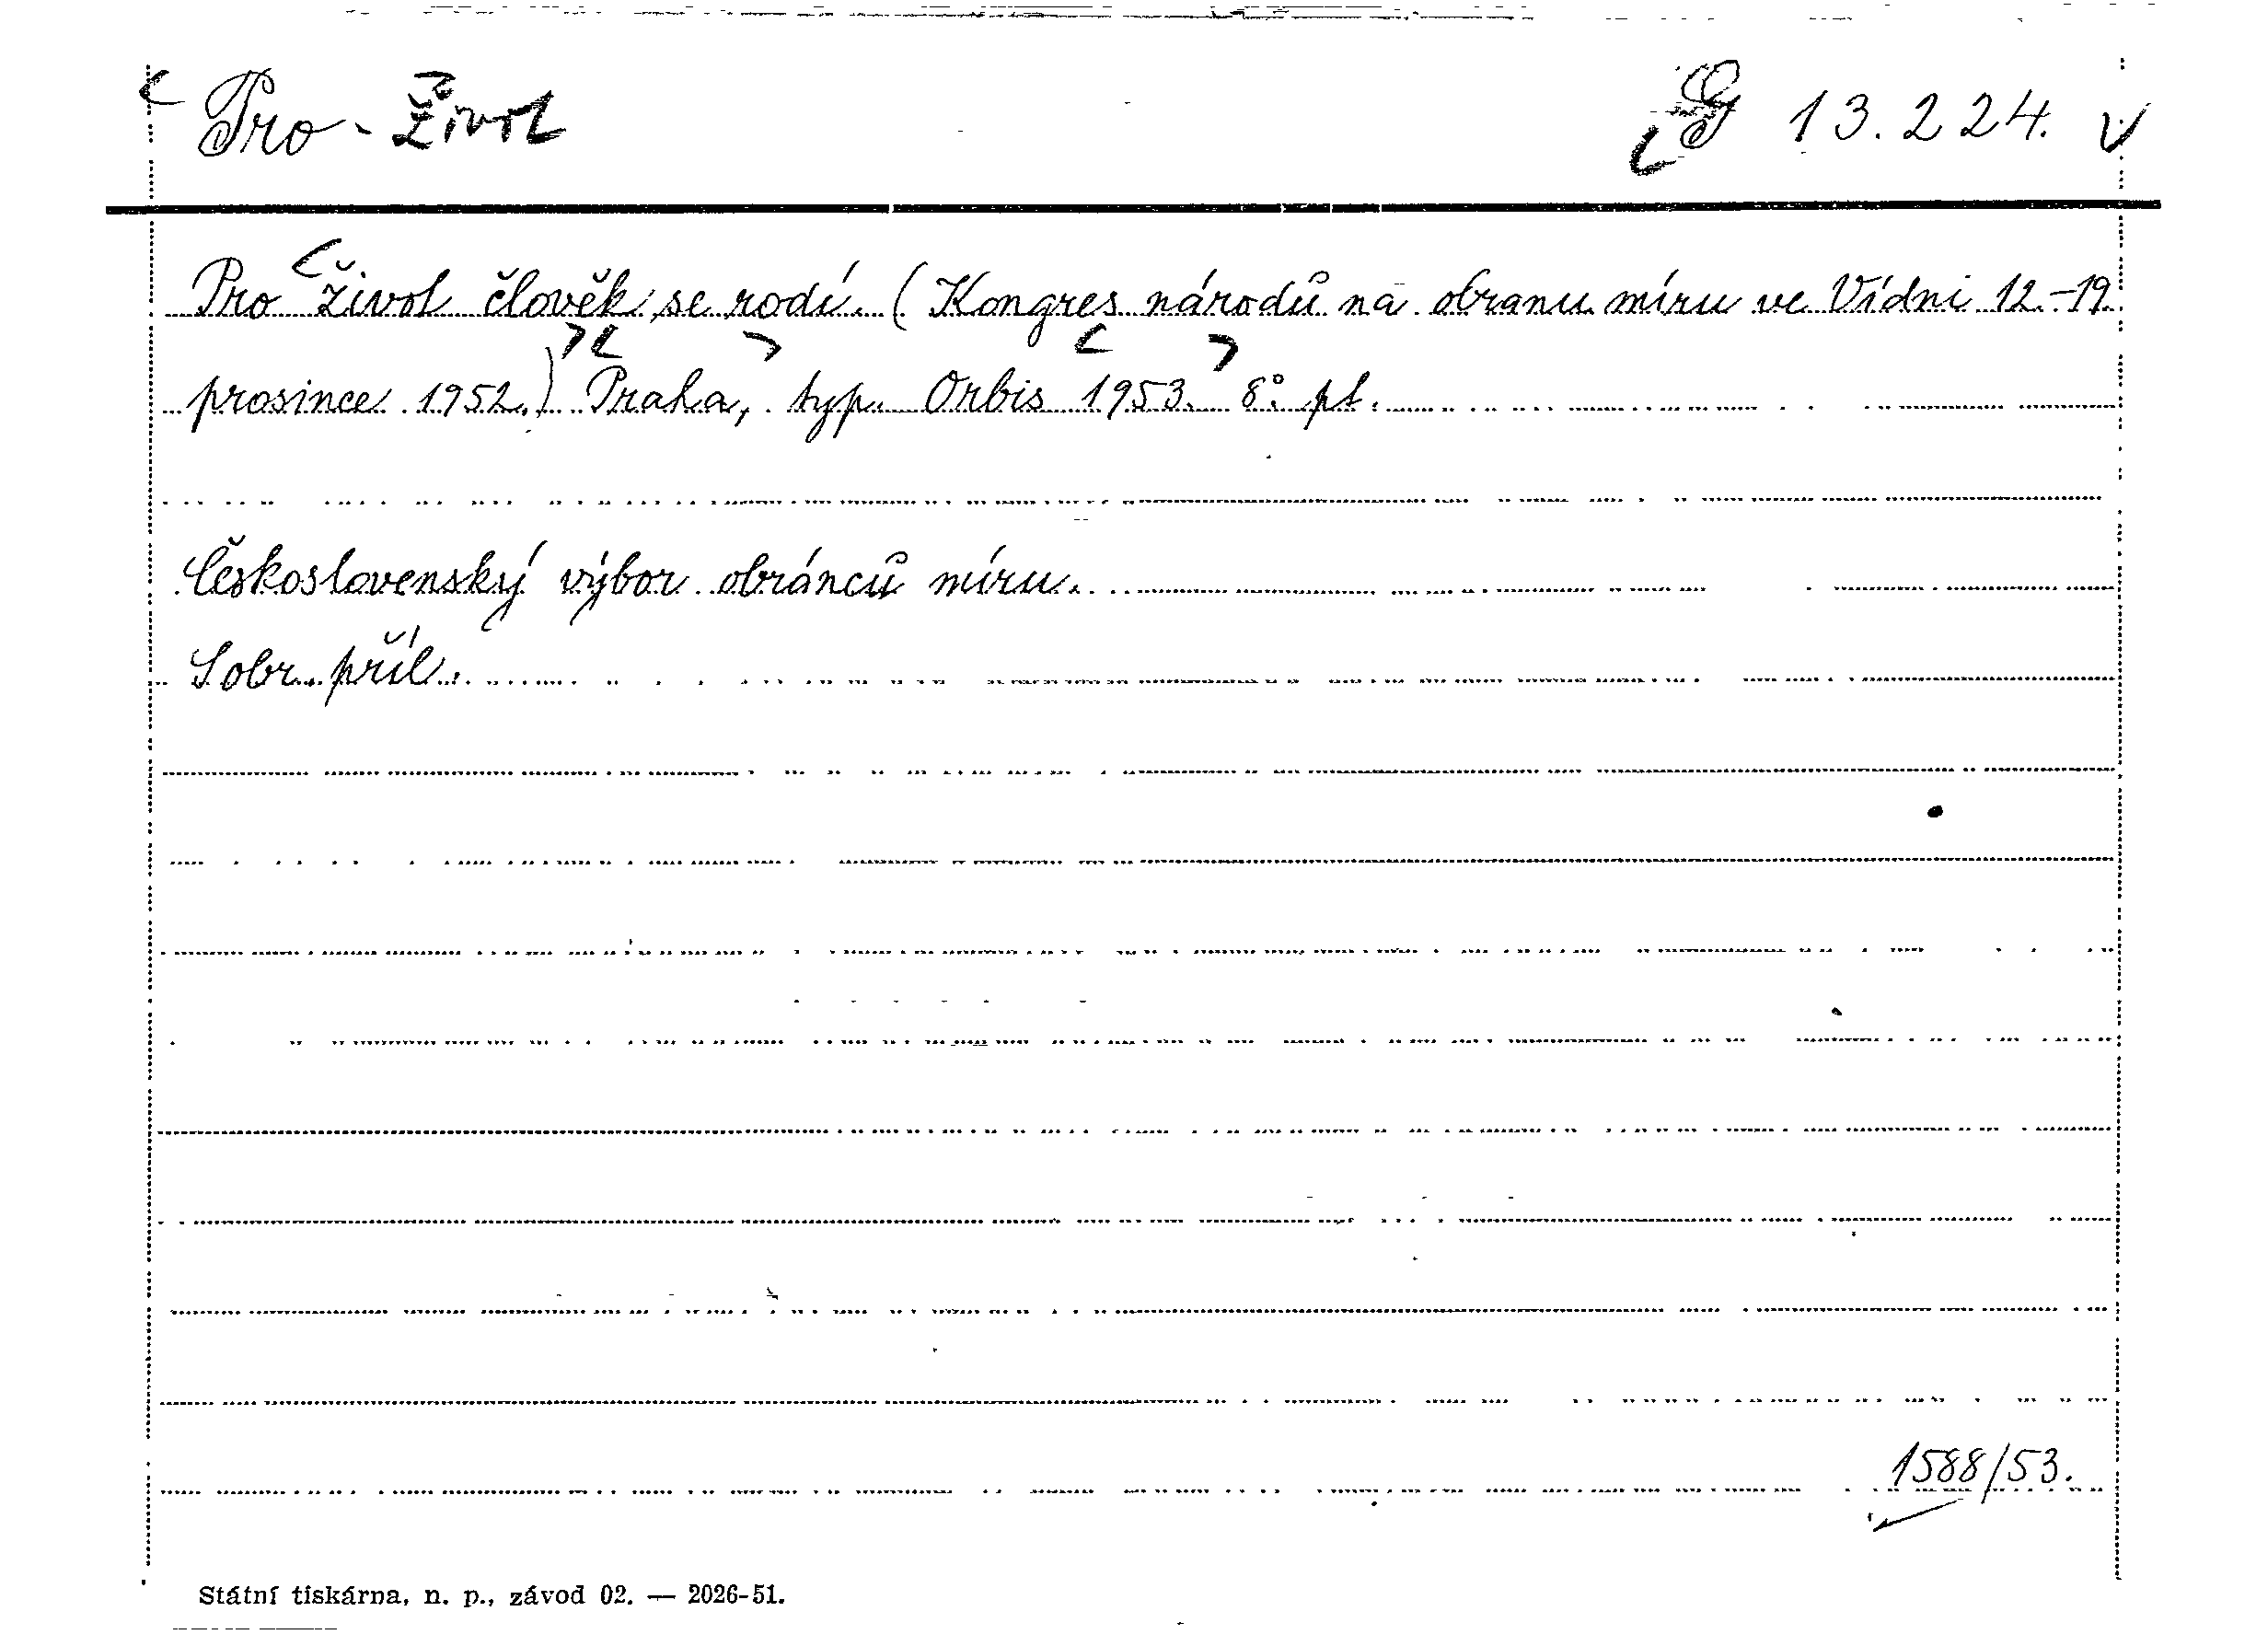 Pro - Život G 13.224.
Pro život člověk se rodí. (Kongres národů na obranu míru ve Vídni 12.-19.
prosince 1952.) Praha, typ. Orbis 1953. 8°. pt.
Československý výbor obránců míru.
S obr. příl.
1588/53.
Státní tiskárna, n. p., závod 02. — 2026-51.